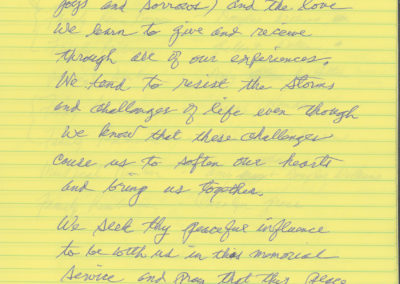 joys and sorrows) and the love
We learn to give and receive
through all of our experiences.
We tend to resist the storms
and challenges of life even though
we know that these challenges
cause us to soften our hearts
and bring us together.
We seek thy peaceful influence
to be with us in this memorial
service and pray that this peace